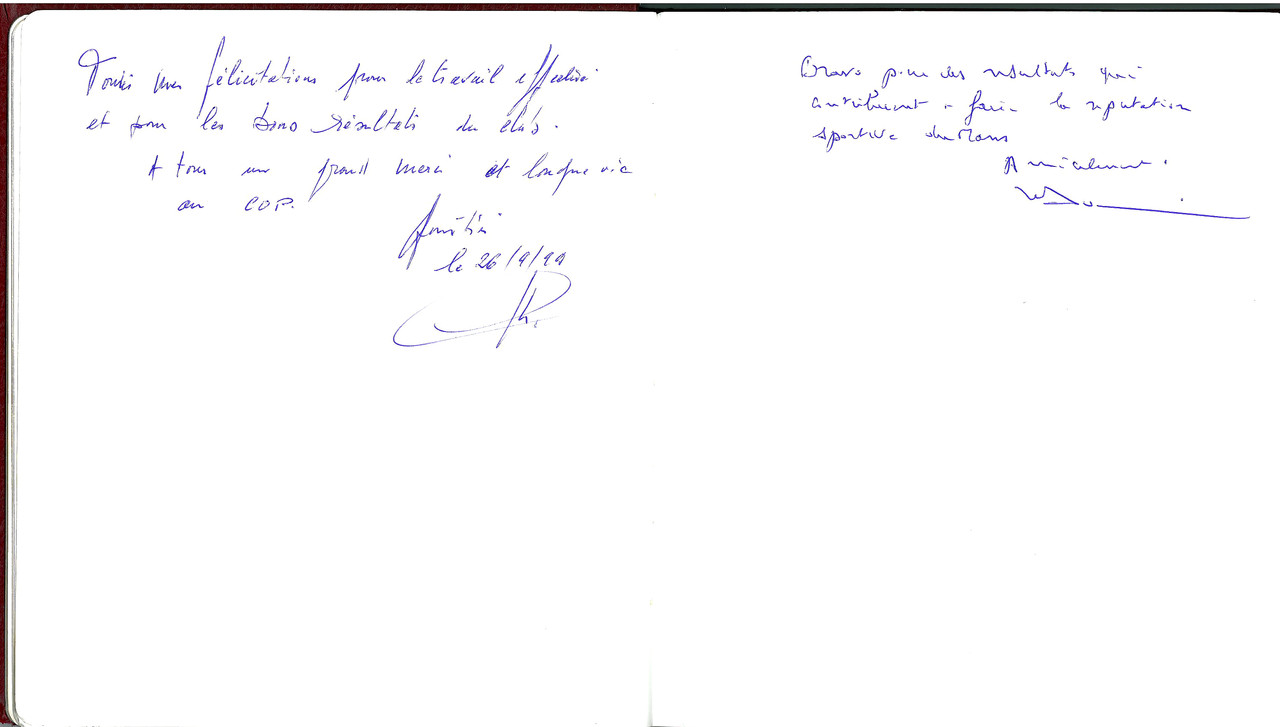 Toutes mes félicitations pour le travail effectué
et pour les bons résultats du club.
A tous un grand merci et longue vie
au COP.
le 26/9/99
Bravo pour des résultats qui
contribuent à faire la réputation
sportive du Mans
Amicalement.